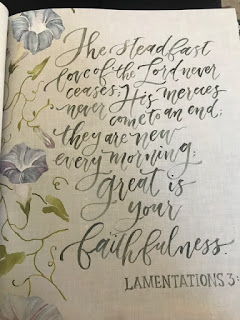 The steadfast
love of the Lord never
ceases; His mercies
never come to an end;
they are new
every morning;
great is
your
faithfulness.
LAMENTATIONS 3: